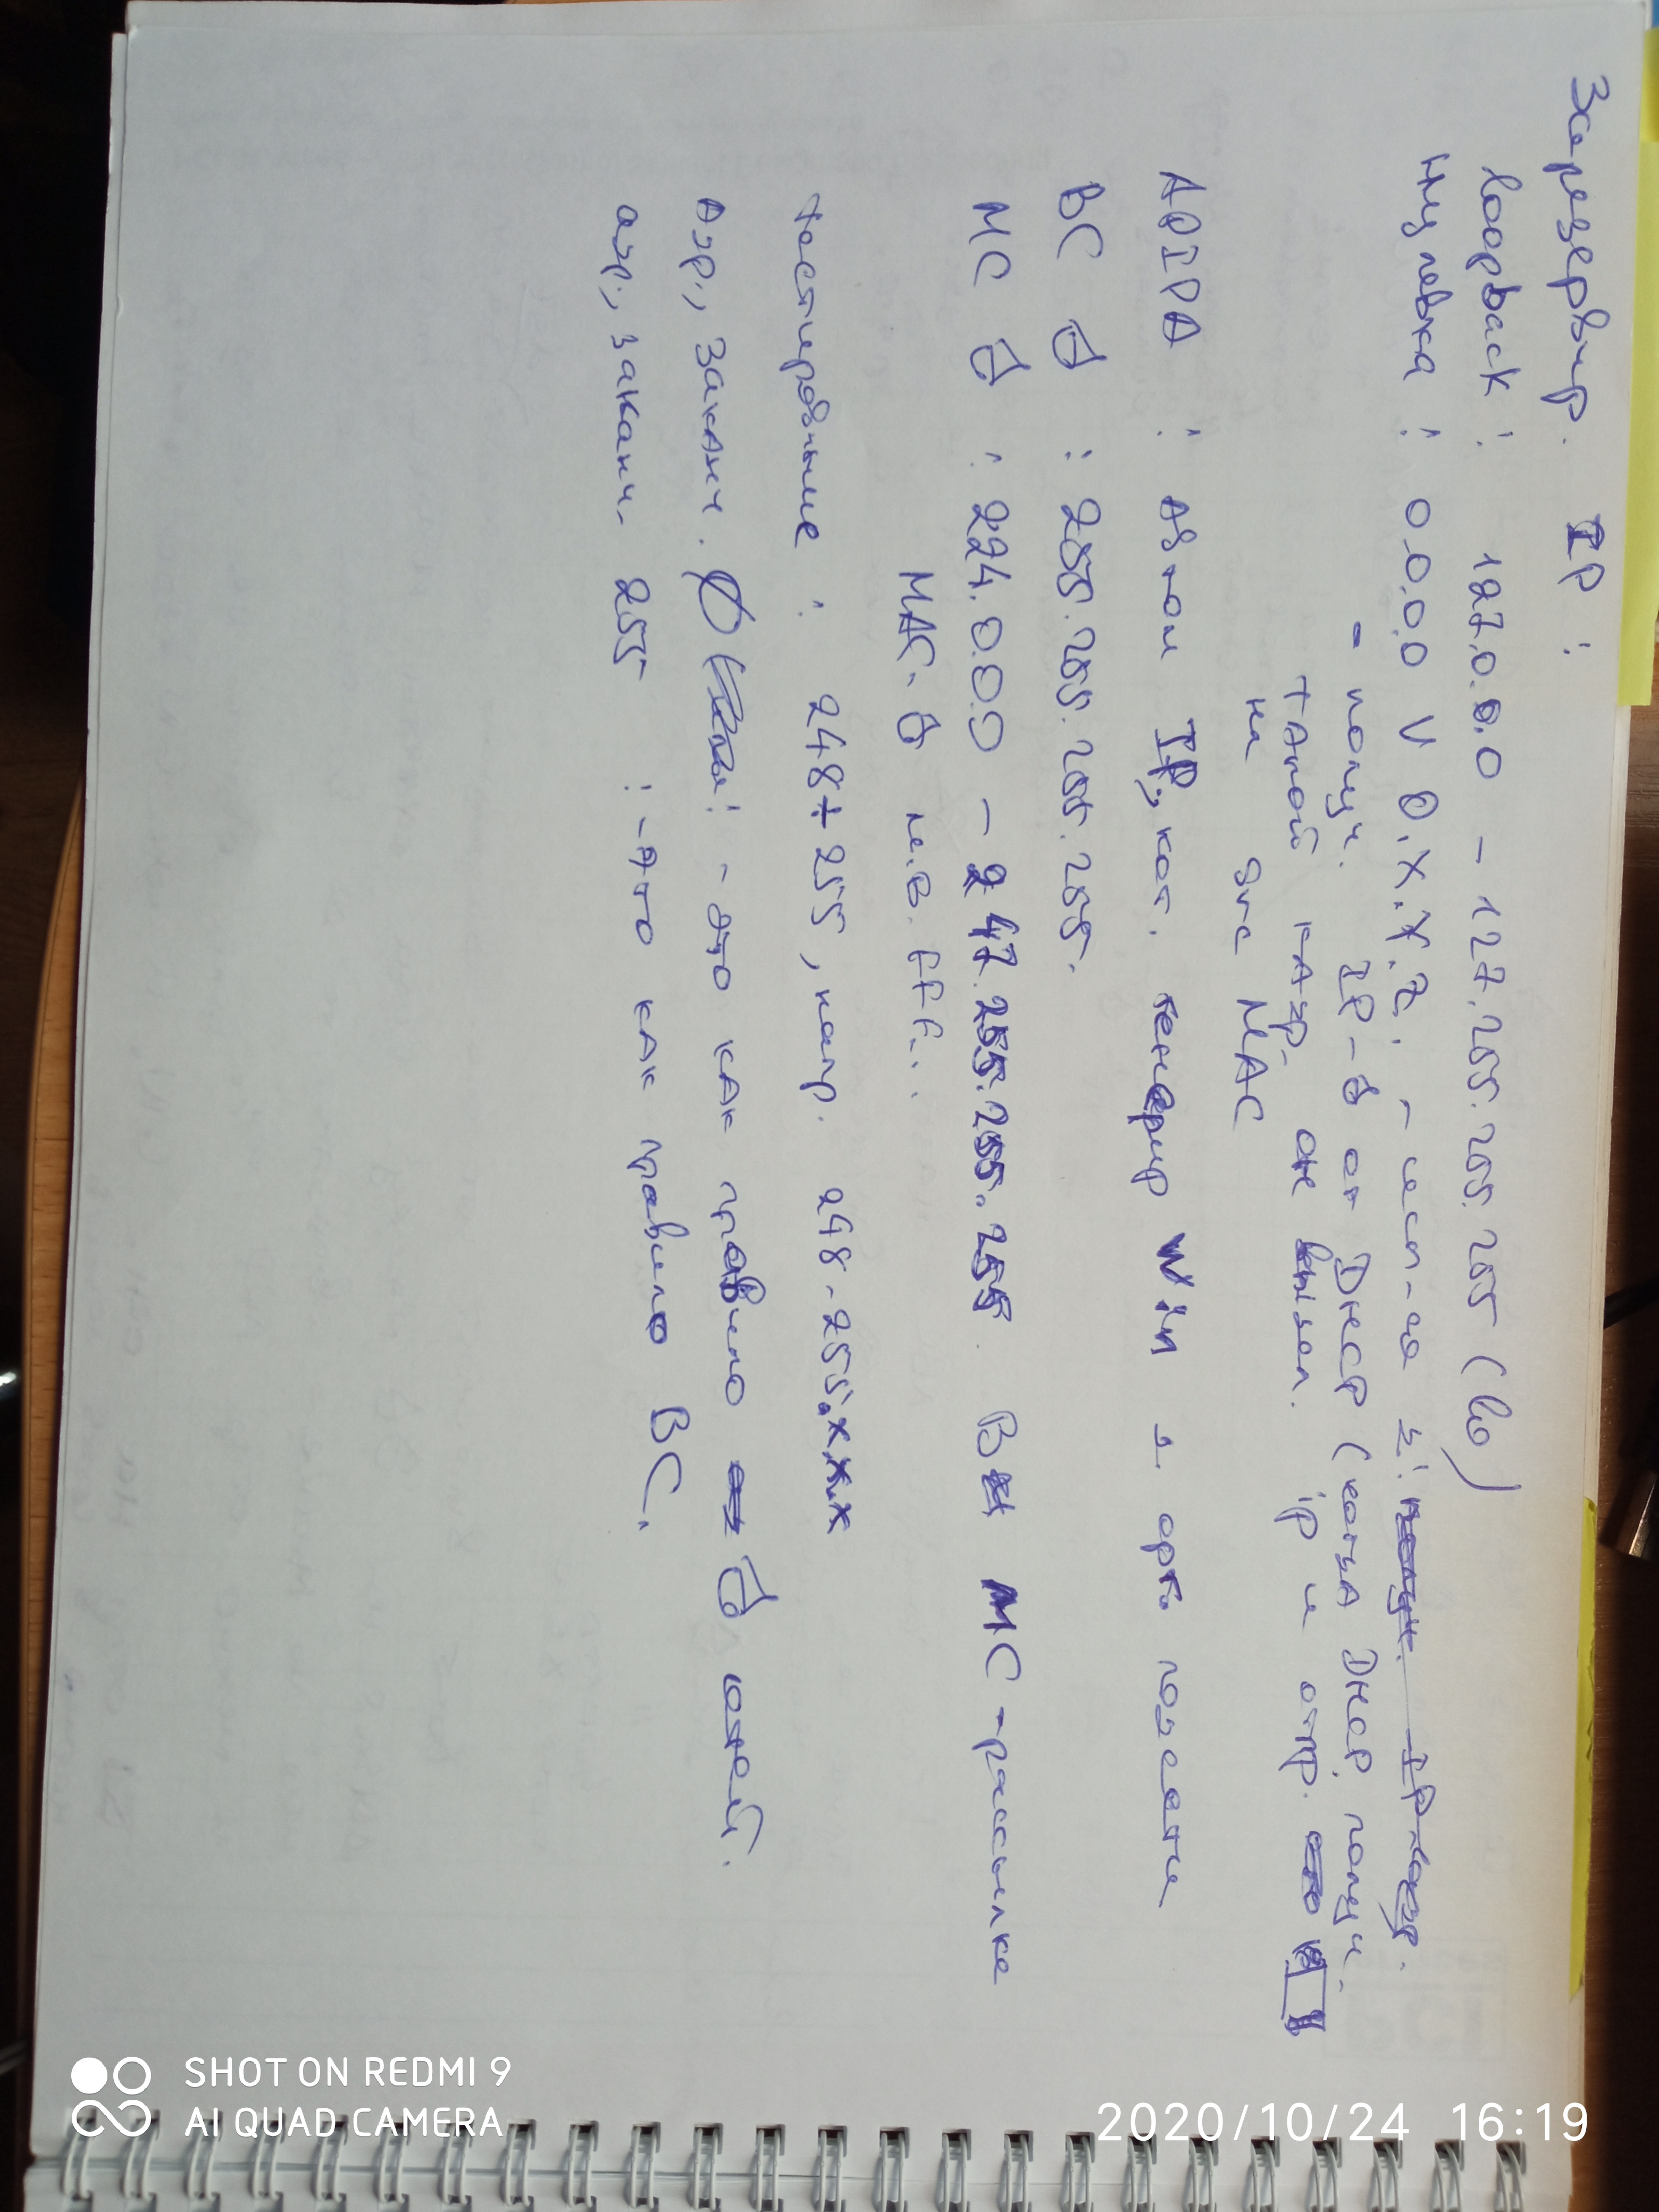 Зарезервир. IP:
loopback: 127.0.0.0 – 127.255.255.255 (lo)
нулевка: 0.0.0.0 V 0.x.x.z: – исп-ие
- получ. IP- от DHCP (когда DHCP получ.
такой кадр, он выдел. ip и отпр.
на MAC
APIPA : автом IP, кот. генерир Win и
BC : 255.255.255.255.
MC : 224.0.0.0 – 247.255.255.255 В MC-рассылке
MAC- м.б. FFF...
тестировные : 248÷255, напр. 248-255.x.x.x
адр., заканч. 0 : - это как правило сетей.
адр., заканч. 255 : - это как правило BC.
SHOT ON REDMI 9
AI QUAD CAMERA
2020/10/24 16:19